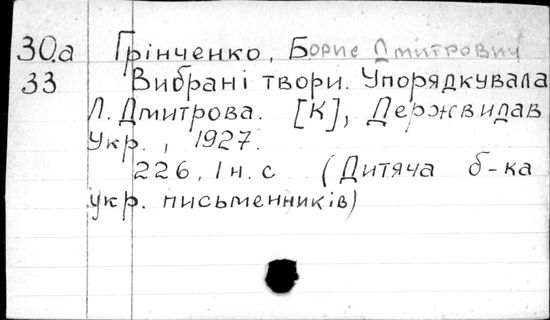 30.а Грінченко, Борис Дмитрович
33 Вибрані твори. Упорядкувала
Л. Дмитрова. [К], Держвидав
Укр., 1927.
226, 1 н. с (Дитяча б-ка
укр. письменників)